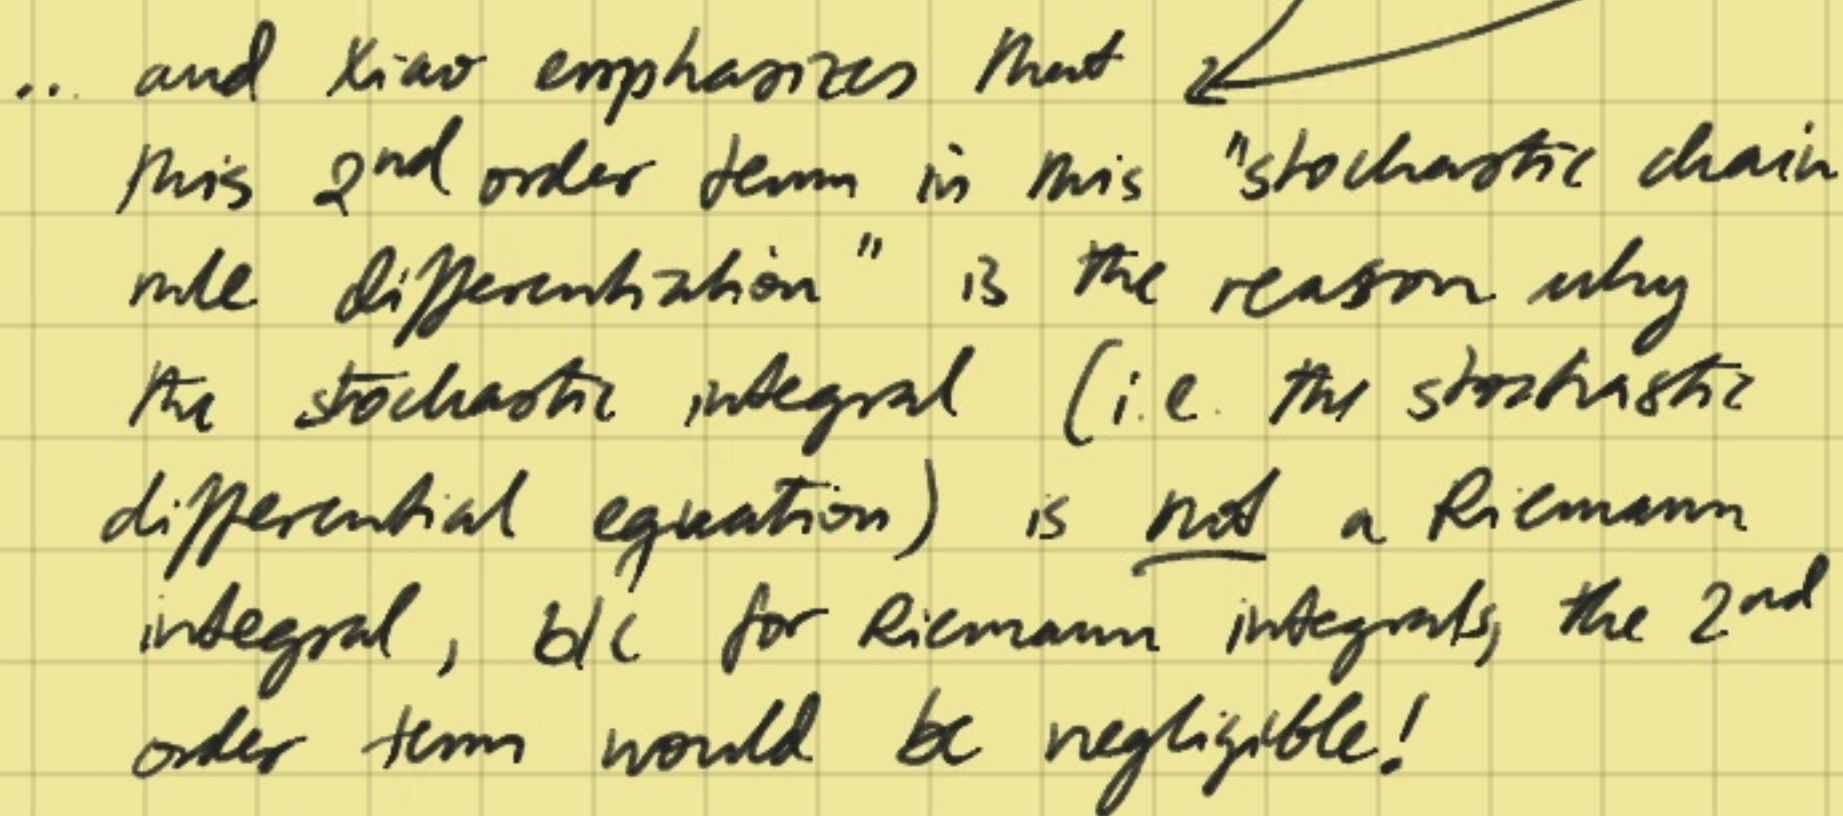 ... and Xiao emphasizes that
this 2nd order term in this "stochastic chain
rule differentiation" is the reason why
the stochastic integral (i.e. the stochastic
differential equation) is not a Riemann
integral, b/c for Riemann integrals, the 2nd
order term would be negligible!